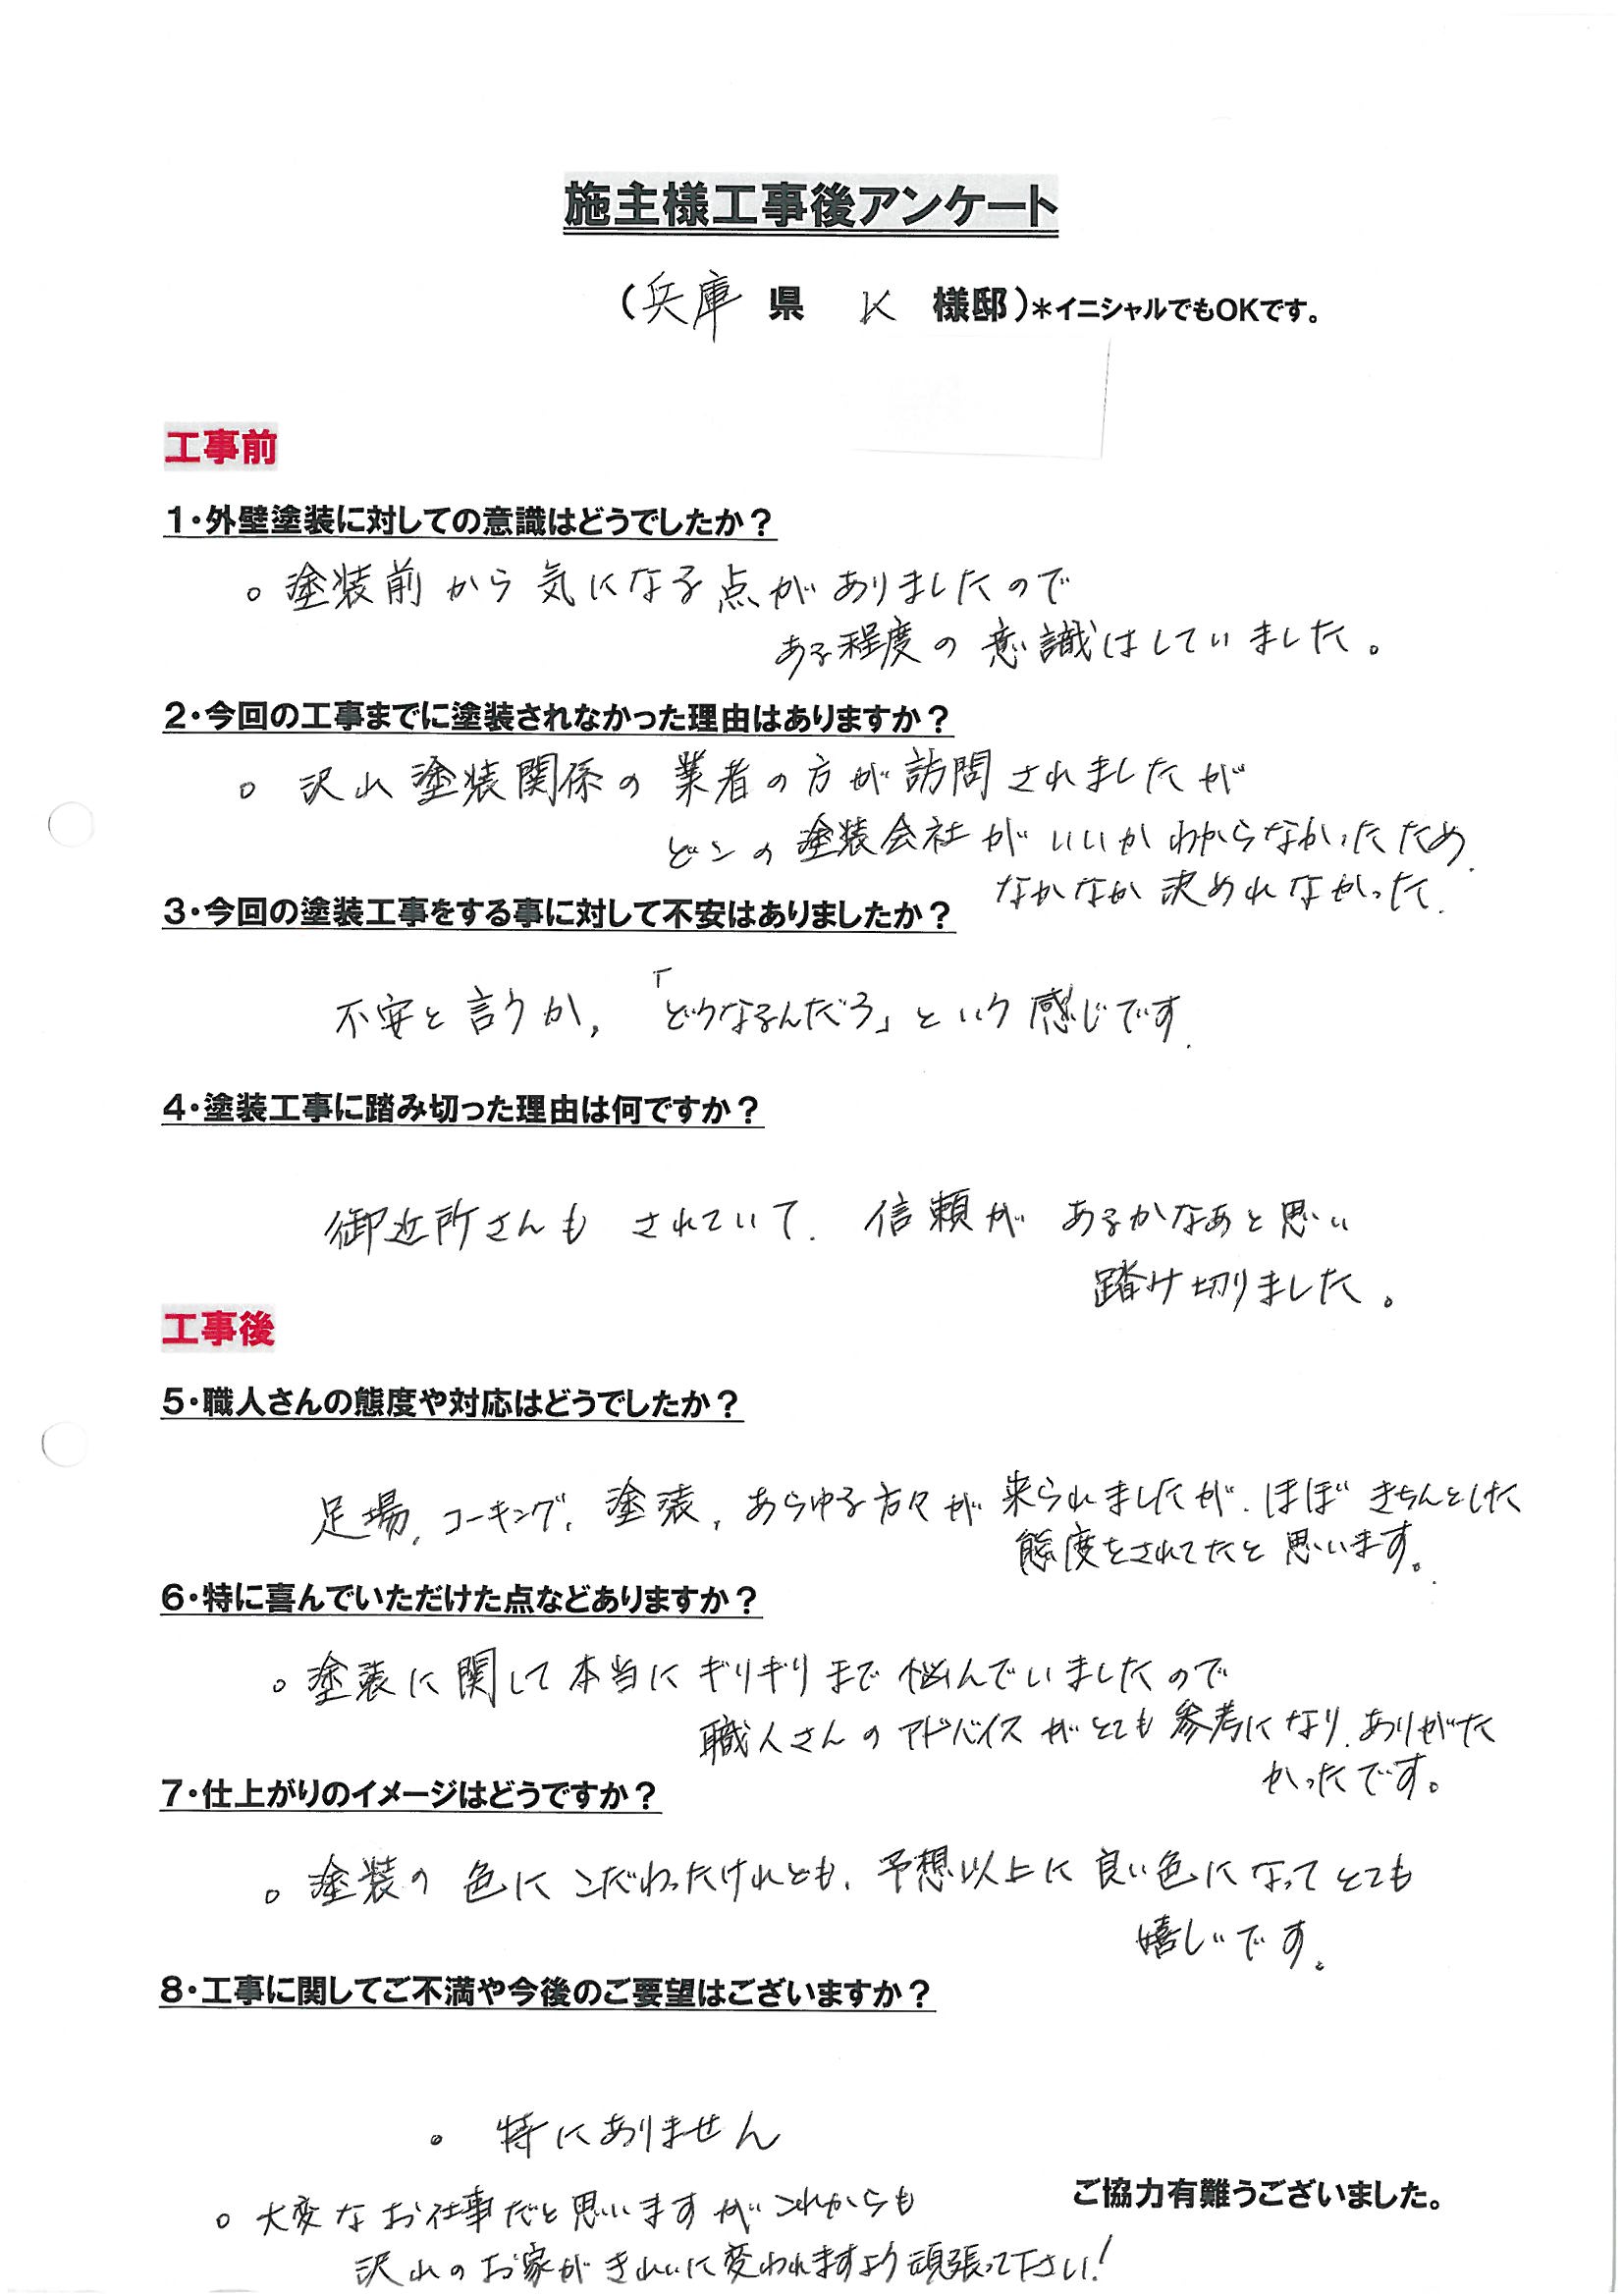 施主様工事後アンケート
(兵庫県 K 様邸)*イニシャルでもOKです。
工事前
1・外壁塗装に対しての意識はどうでしたか？
○ 塗装前から気になる点がありましたので
ある程度の意識はしていました。
2・今回の工事までに塗装されなかった理由はありますか？
○ 沢山塗装関係の業者の方が訪問されましたが
どこの塗装会社がいいかわからなかったため、
なかなか決めれなかった.
3・今回の塗装工事をする事に対して不安はありましたか？
不安と言うか,「どうなるんだろ」という感じです.
4・塗装工事に踏み切った理由は何ですか？
御近所さんもされていて. 信頼があるかなあと思い
踏み切りました。
工事後
5・職人さんの態度や対応はどうでしたか？
足場, コーキング, 塗装, あらゆる方々が来られましたが. ほぼきちんとした
態度をされてたと思います。
6・特に喜んでいただけた点などありますか？
○ 塗装に関して本当にギリギリまで悩んでいましたので
職人さんのアドバイスがとても参考になり. ありがた
かったです。
7・仕上がりのイメージはどうですか？
○ 塗装の色にこだわったけれども. 予想以上に良い色になってとても
嬉しいです。
8・工事に関してご不満や今後のご要望はございますか？
○ 特にありません
ご協力有難うございました。
○ 大変なお仕事だと思いますがこれからも
沢山のお家がきれいに変われますよう頑張って下さい!